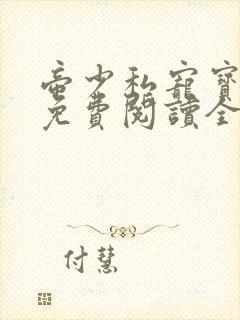 帝少私寵寶
免費閱讀全
付慧